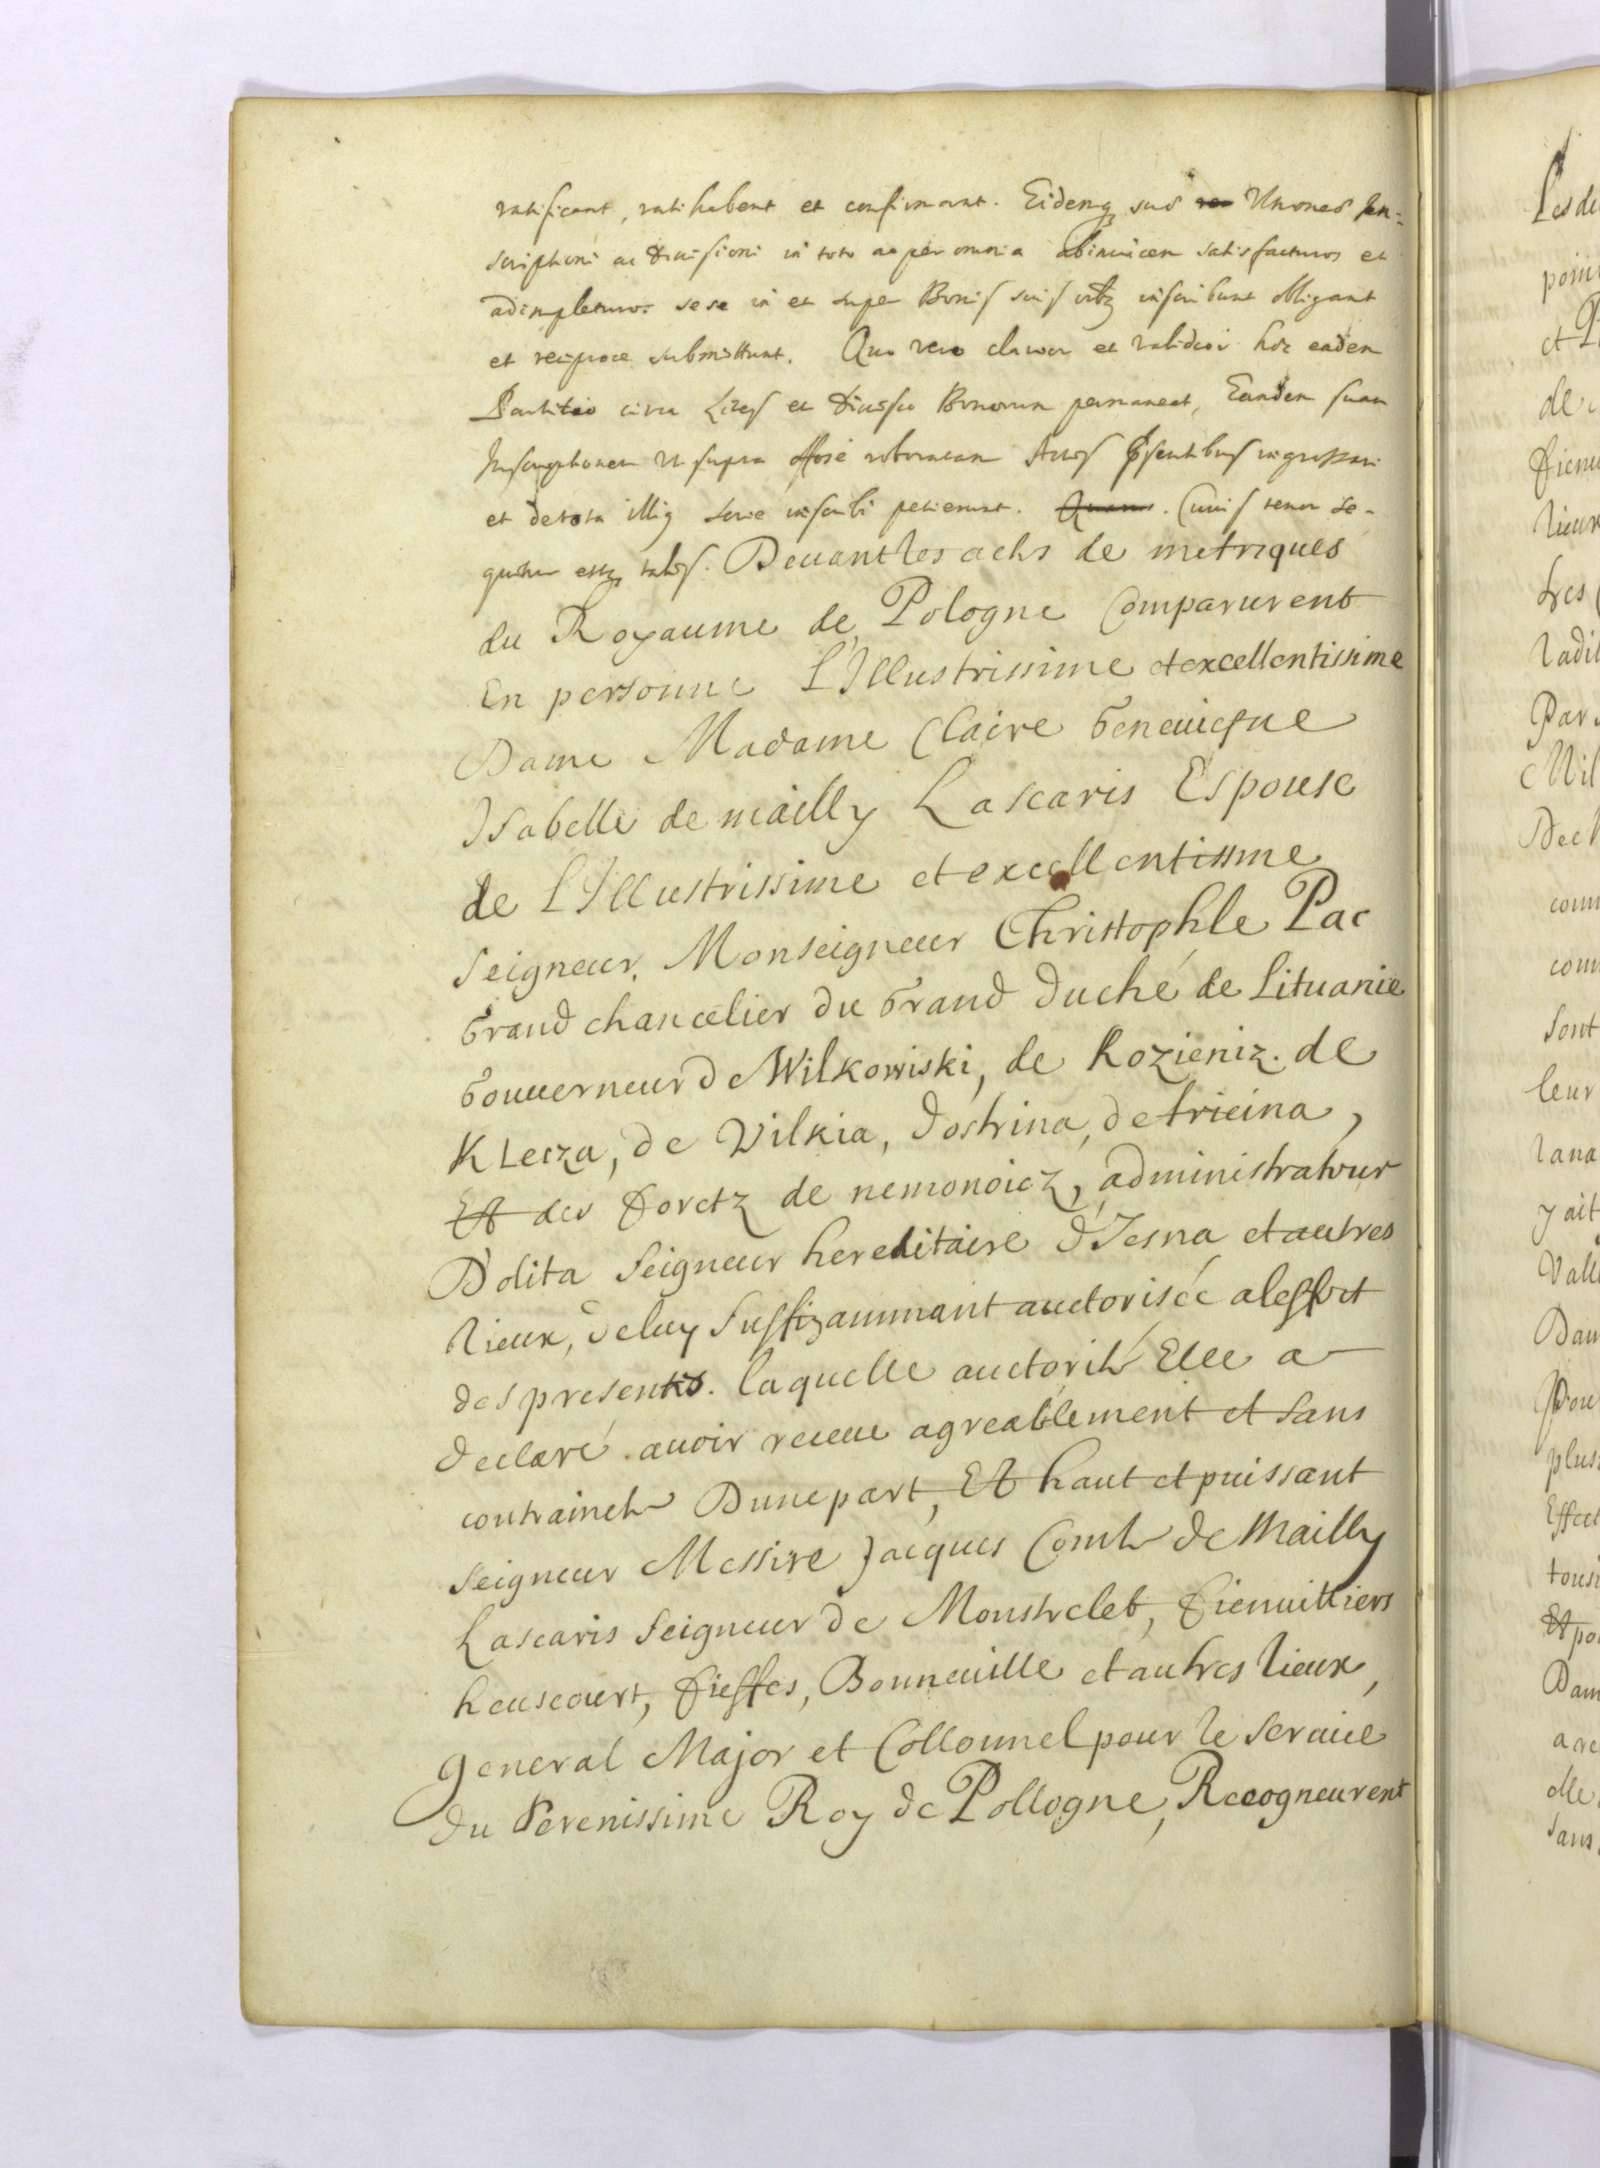 ratificant, ratihabent et confirmant. Eidemq sua Unones
scriptioni ac Divisioni in toto ac per omnia abinvicem satisfacturos et
adimpleturos sese in et super Bonis suis inscribunt obligant
et reciproce submittunt. Quo vero clarior et validior hæc eadem
Partitio circa et Divisio Bonorum permaneat, Eandem suam
Inscriptionem ut supra roboratam Actis pſentibus ingrossari
et de tota illiq serie inscribi petierunt. Cuius tenor se-
quitur estq talis. Deuant les acts de metriques
du Royaume de Pologne Comparurent
En personne L'Illustrissime et excellentissime
Dame Madame Claire Geneuiefue
Isabelle de mailly Lascaris Espouse
de L'Illustrissime et excellentissme
Seigneur, Monseigneur Christophle Pac
Grand chancelier du Grand Duché de Lituanie
Gouuerneur de Wilkowiski, de Kozieniz. de
Klecza, de Vilkia, dostrina, detrieina,
Et des Foretz de nemonoicz, administrateur
Dolita Seigneur hereditaire d'Iesna et autres
lieux, de luy Suffizammant auctorisée aleffect
des presentes. laquelle auctorité Elle a
declaré auoir receue agreablement et sans
contraincte Dune part, Et haut et puissant
Seigneur Messire Jacques Comte de Mailly
Lascaris Seigneur de Monstrelet, Fienuilliers
heuscourt, Fieffes, Bonneuille et autres lieux,
general Major et Collonnel pour le Seruice
du Serenissime Roy de Pollogne, Recogneurent